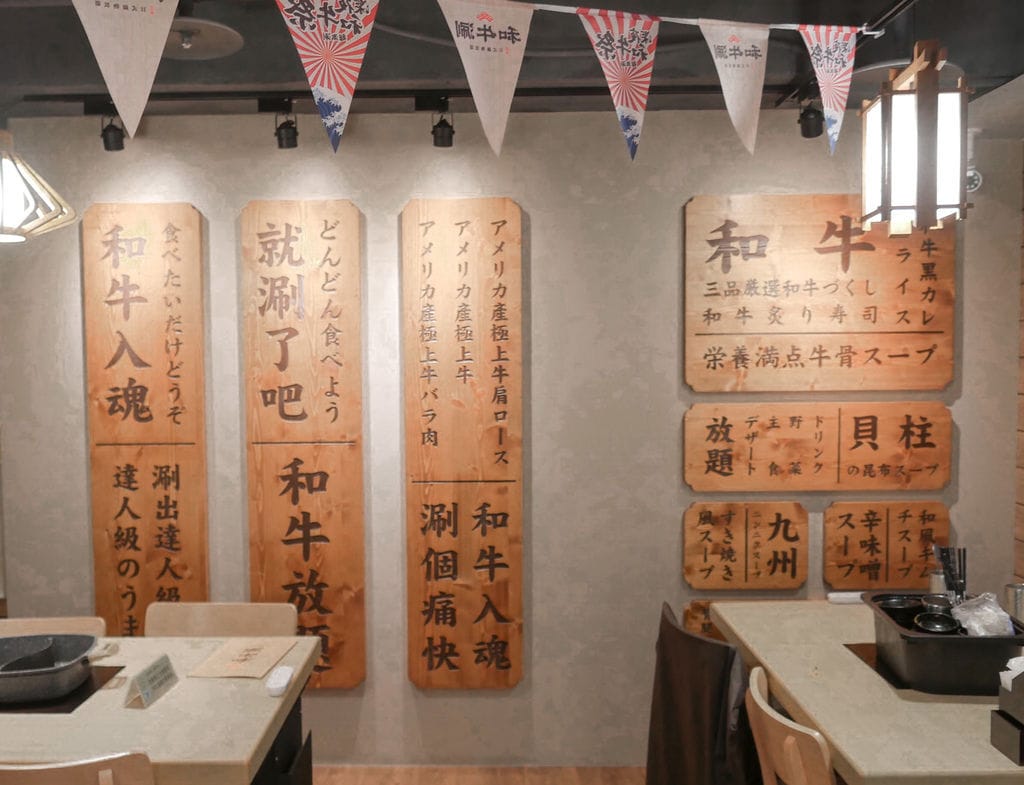 和牛涮
和牛祭
和牛涮
和牛祭
和牛涮
和牛祭
食べたいだけどうぞ
和牛入魂
涮出達人級
達人級のうま
どんどん食べよう
就涮了吧
和牛放題
アメリカ産極上牛肩ロース
アメリカ産極上牛
アメリカ産極上牛バラ肉
和牛入魂
涮個痛快
和牛
三品厳選和牛づくし
和牛炙り寿司
牛黒カレ
ライス
栄養満点牛骨スープ
柱
貝
の昆布スープ
ドリンク
野菜
主食
デザート
放題
九州
ニンニクスープ
すき焼き
風スープ
和風
チスープ
辛味噌
スープ